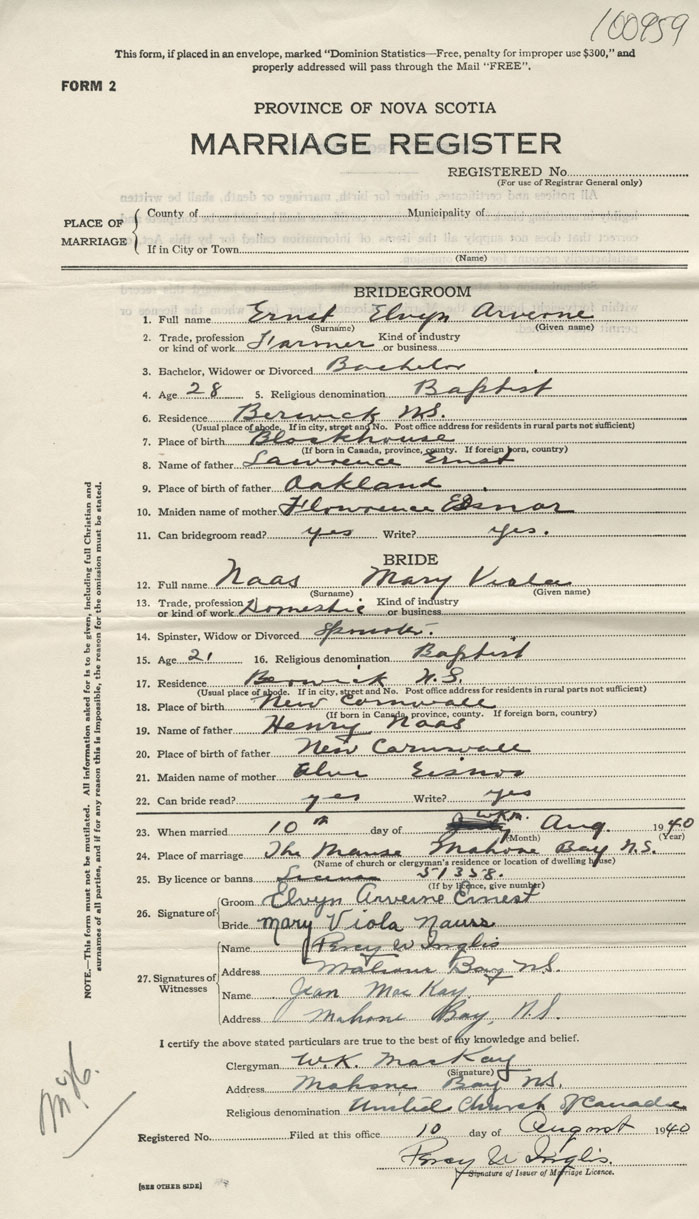 100959
This form, if placed in an envelope, marked "Dominion Statistics—Free, penalty for improper use $300," and
properly addressed will pass through the Mail "FREE".
FORM 2
PROVINCE OF NOVA SCOTIA
MARRIAGE REGISTER
REGISTERED No.
(For use of Registrar General only)
PLACE OF MARRIAGE
County of Municipality of
If in City or Town
(Name)
BRIDEGROOM
1. Full name Ernst Elvyn Arverne
(Surname) (Given name)
2. Trade, profession or kind of work Farmer Kind of industry or business
3. Bachelor, Widower or Divorced Bachelor
4. Age 28 5. Religious denomination Baptist
6. Residence Berwick N.S.
(Usual place of abode. If in city, street and No. Post office address for residents in rural parts not sufficient)
7. Place of birth Blockhouse
(If born in Canada, province, county. If foreign born, country)
8. Name of father Lawrence Ernst
9. Place of birth of father Oakland
10. Maiden name of mother Flowrence
11. Can bridegroom read? yes Write? yes.
BRIDE
12. Full name Naas Mary Viola
(Surname) (Given name)
13. Trade, profession or kind of work Domestic Kind of industry or business
14. Spinster, Widow or Divorced Spinster.
15. Age 21 16. Religious denomination Baptist
17. Residence Berwick N.S.
(Usual place of abode. If in city, street and No. Post office address for residents in rural parts not sufficient)
18. Place of birth New Cornwall
(If born in Canada, province, county. If foreign born, country)
19. Name of father Henry Naas
20. Place of birth of father New Cornwall
21. Maiden name of mother Eisnor
22. Can bride read? yes Write? yes
23. When married 10th day of W.K.M. Aug. 1940
(Month) (Year)
24. Place of marriage The Manse Mahone Bay N.S.
(Name of church or clergyman's residence or location of dwelling house)
25. By licence or banns License 51358.
(If by licence, give number)
26. Signature of
Groom Elvyn Arverne Ernest
Bride Mary Viola Nauss
27. Signatures of Witnesses
Name Percy W Inglis
Address Mahone Bay N.S.
Name Jean MacKay
Address Mahone Bay, N.S.
I certify the above stated particulars are true to the best of my knowledge and belief.
Clergyman W.K. MacKay
(Signature)
Address Mahone Bay N.S.
Religious denomination United Church of Canada
Registered No. Filed at this office 10 day of August 1940
Percy W Inglis.
Signature of Issuer of Marriage Licence.
[SEE OTHER SIDE]
NOTE.—This form must not be mutilated. All information asked for is to be given, including full Christian and
surnames of all parties, and if for any reason this is impossible, the reason for the omission must be stated.